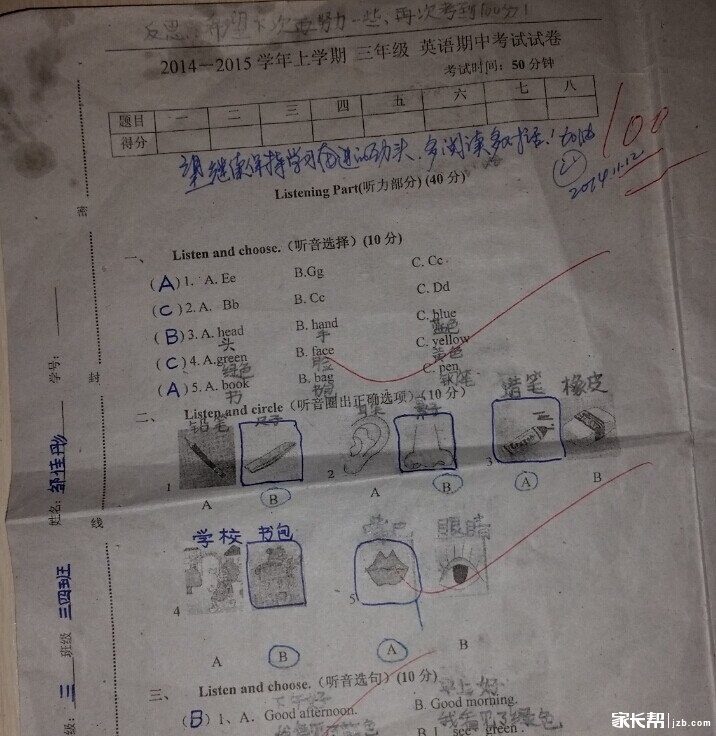 反思：希望下次再努力一些、再次考到100分！
2014—2015 学年上学期 三年级 英语期中考试试卷
考试时间：50 分钟
题目 一 二 三 四 五 六 七 八
得分
100
望继续保持学习奋进的劲头、多阅读多对话！加油
2014.11.12
Listening Part(听力部分) (40 分)
一、 Listen and choose.（听音选择）(10 分)
(A) 1. A. Ee B.Gg C. Cc
(C) 2. A. Bb B. Cc C. Dd
(B) 3. A. head B. hand C. blue
头 手 蓝色
(C) 4. A.green B. face C. yellow
绿色 脸 黄色
(A) 5. A. book B. bag C. pen
书 书包 钢笔
二、 Listen and circle（听音圈出正确选项）(10 分)
铅笔 尺子 耳朵 鼻子 蜡笔 橡皮
CRAYON
1 2 3
A B A B A B
学校 书包 眼睛
4 5
A B A B
三、 Listen and choose.（听音选句）(10 分)
下午好 早上好
(B) 1、A. Good afternoon. B. Good morning.
我看见了绿色
B. I see green.
密
封
线
学号：
姓名：邹佳彤
班级 三四班
级：三
家长帮 jzb.com